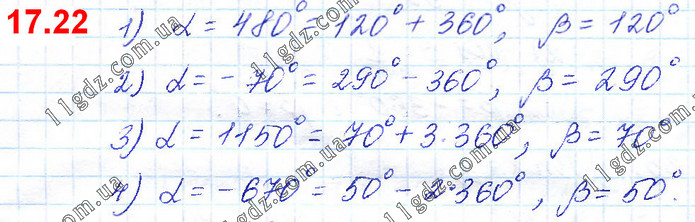 17.22 1) α = 480° = 120° + 360°, β = 120°
2) α = -70° = 290° - 360°, β = 290°
3) α = 1150° = 70° + 3·360°, β = 70°
4) α = -670° = 50° - 2·360°, β = 50°.
11gdz.com.ua
11gdz.com.ua
11gdz.com.ua
11gdz.com.ua
11gdz.com.ua